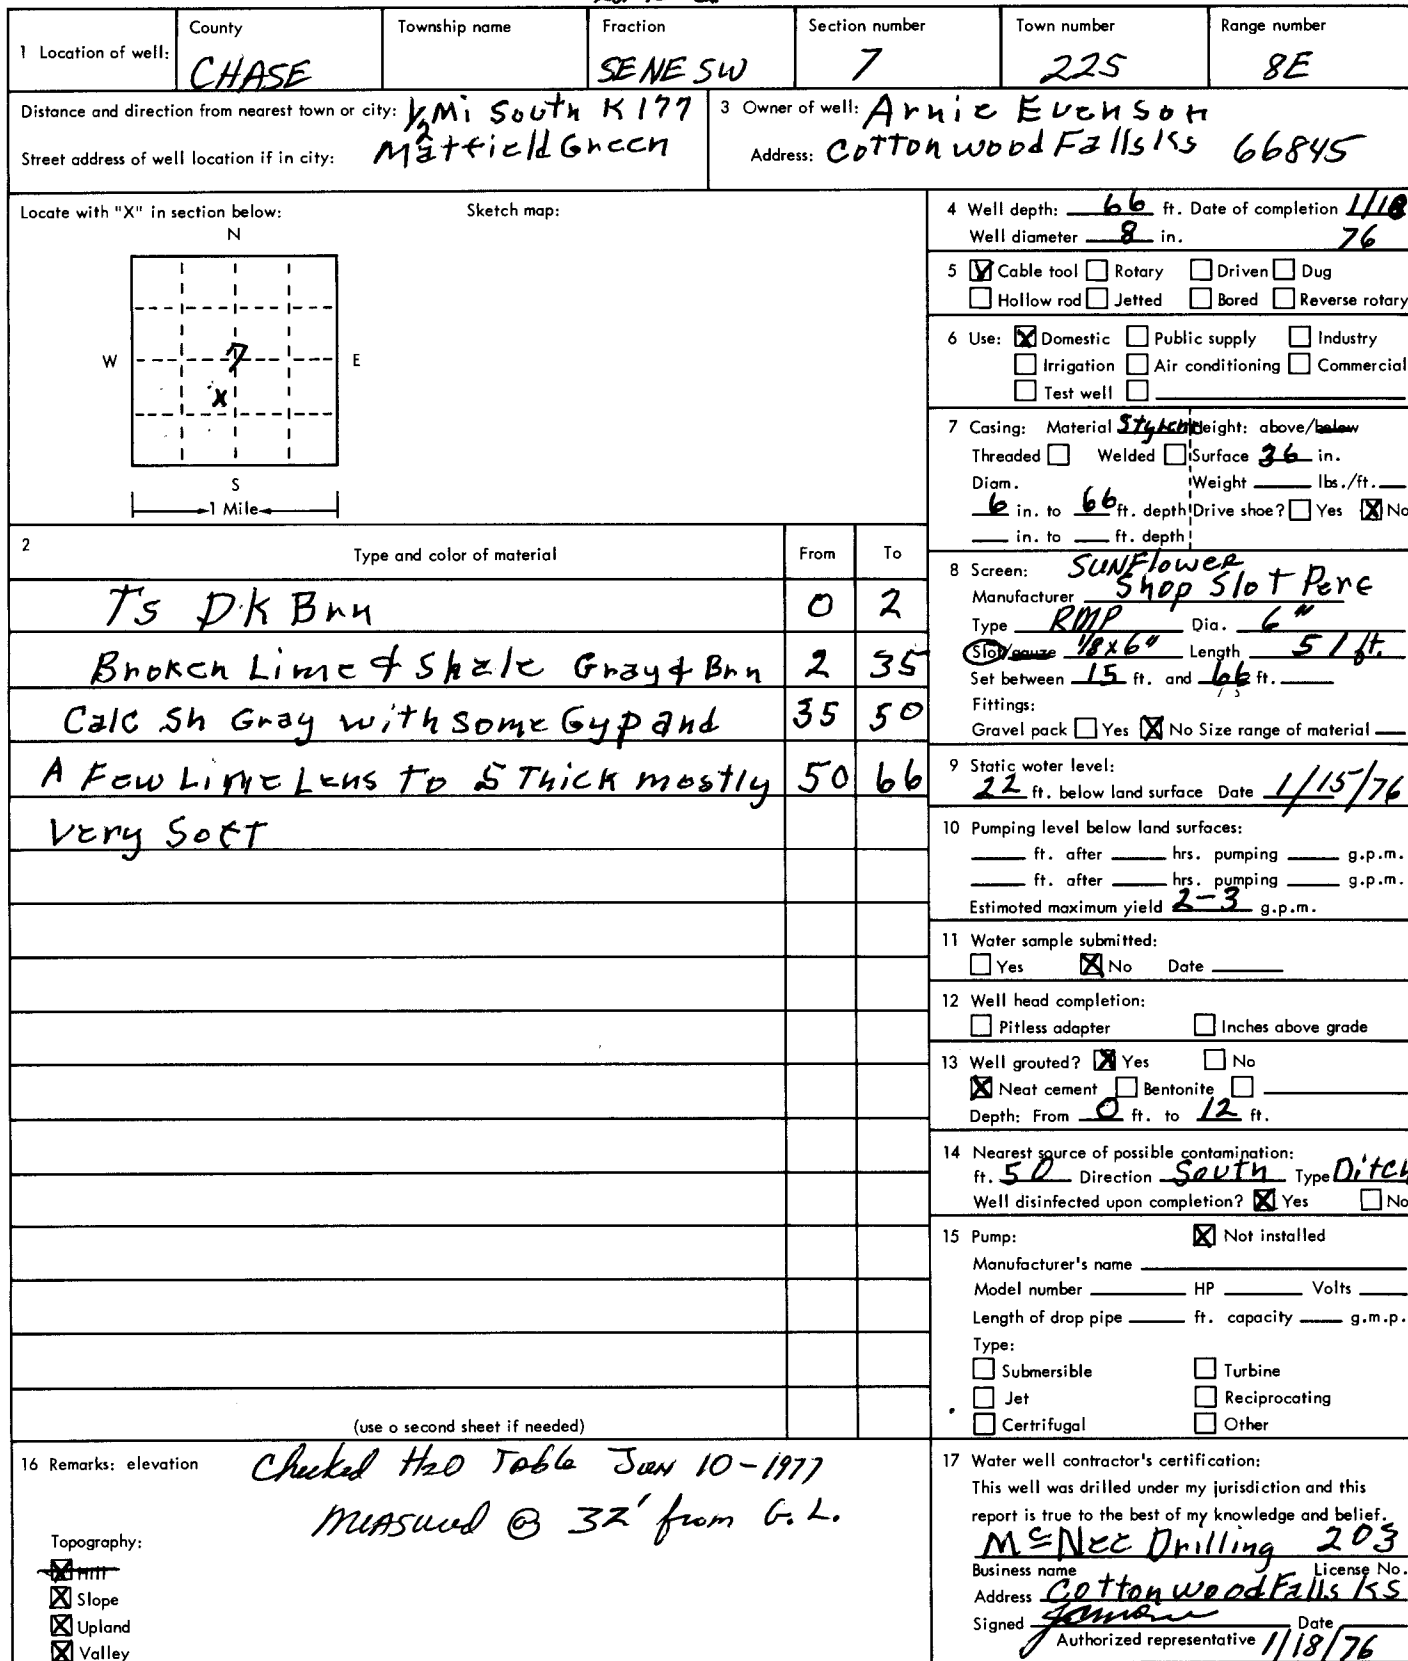 1 Location of well: County CHASE Township name Fraction SE NE SW Section number 7 Town number 22S Range number 8E
Distance and direction from nearest town or city: 1/2 Mi South K 177
Street address of well location if in city: Matfield Green
3 Owner of well: Arnie Evenson
Address: Cottonwood Falls Ks 66845
Locate with "X" in section below: Sketch map:
N
W 7 E
X
S
1 Mile
2 Type and color of material From To
Ts DK Brn 0 2
Broken Lime & Shale Gray & Brn 2 35
Calc Sh Gray with some Gyp and 35 50
A Few Lime Lens To 5 Thick mostly 50 66
Very Soft
(use o second sheet if needed)
4 Well depth: 66 ft. Date of completion 1/18
Well diameter 8 in. 76
5 Cable tool Rotary Driven Dug
Hollow rod Jetted Bored Reverse rotary
6 Use: Domestic Public supply Industry
Irrigation Air conditioning Commercial
Test well
7 Casing: Material Height: above/below
Threaded Welded Surface 36 in.
Diam. Weight lbs./ft.
6 in. to 66 ft. depth Drive shoe? Yes No
in. to ft. depth
8 Screen: SUNFlower
Manufacturer Shop Slot Perf
Type RMP Dia. 6"
Slot/gauze 1/8 x 6" Length 51 ft.
Set between 15 ft. and 66 ft.
Fittings:
Gravel pack Yes No Size range of material
9 Static woter level:
22 ft. below land surface Date 1/15/76
10 Pumping level below land surfaces:
ft. after hrs. pumping g.p.m.
ft. after hrs. pumping g.p.m.
Estimoted maximum yield 2-3 g.p.m.
11 Water sample submitted:
Yes No Date
12 Well head completion:
Pitless adapter Inches above grade
13 Well grouted? Yes No
Neat cement Bentonite
Depth: From 0 ft. to 12 ft.
14 Nearest source of possible contamination:
ft. 50 Direction South Type Ditch
Well disinfected upon completion? Yes No
15 Pump: Not installed
Manufacturer's name
Model number HP Volts
Length of drop pipe ft. capacity g.m.p.
Type:
Submersible Turbine
Jet Reciprocating
Certrifugal Other
16 Remarks: elevation Checked H2O Table Jun 10-1977
Measured @ 32' from G.L.
Topography:
Hill
Slope
Upland
Valley
17 Water well contractor's certification:
This well was drilled under my jurisdiction and this
report is true to the best of my knowledge and belief.
McNee Drilling 203
Business name License No.
Address Cottonwood Falls Ks
Signed Date
Authorized representative 1/18/76